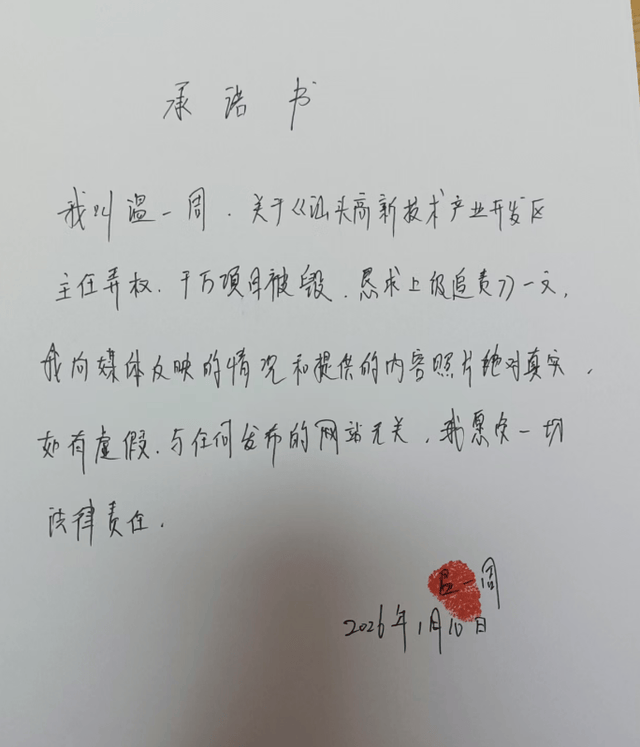 承诺书
我叫温一周，关于《汕头高新技术产业开发区
主任弄权、千万项目被毁、恳求上级追责》一文，
我向媒体反映的情况和提供的内容照片绝对真实，
如有虚假、与任何发布的网站无关，我愿负一切
法律责任.
温一周
2026年1月10日